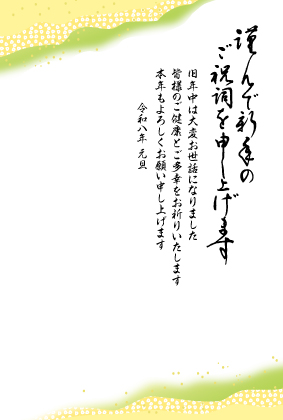 謹んで新年の
ご祝詞を申し上げます
旧年中は大変お世話になりました
皆様のご健康とご多幸をお祈りいたします
本年もよろしくお願い申し上げます
令和八年 元旦